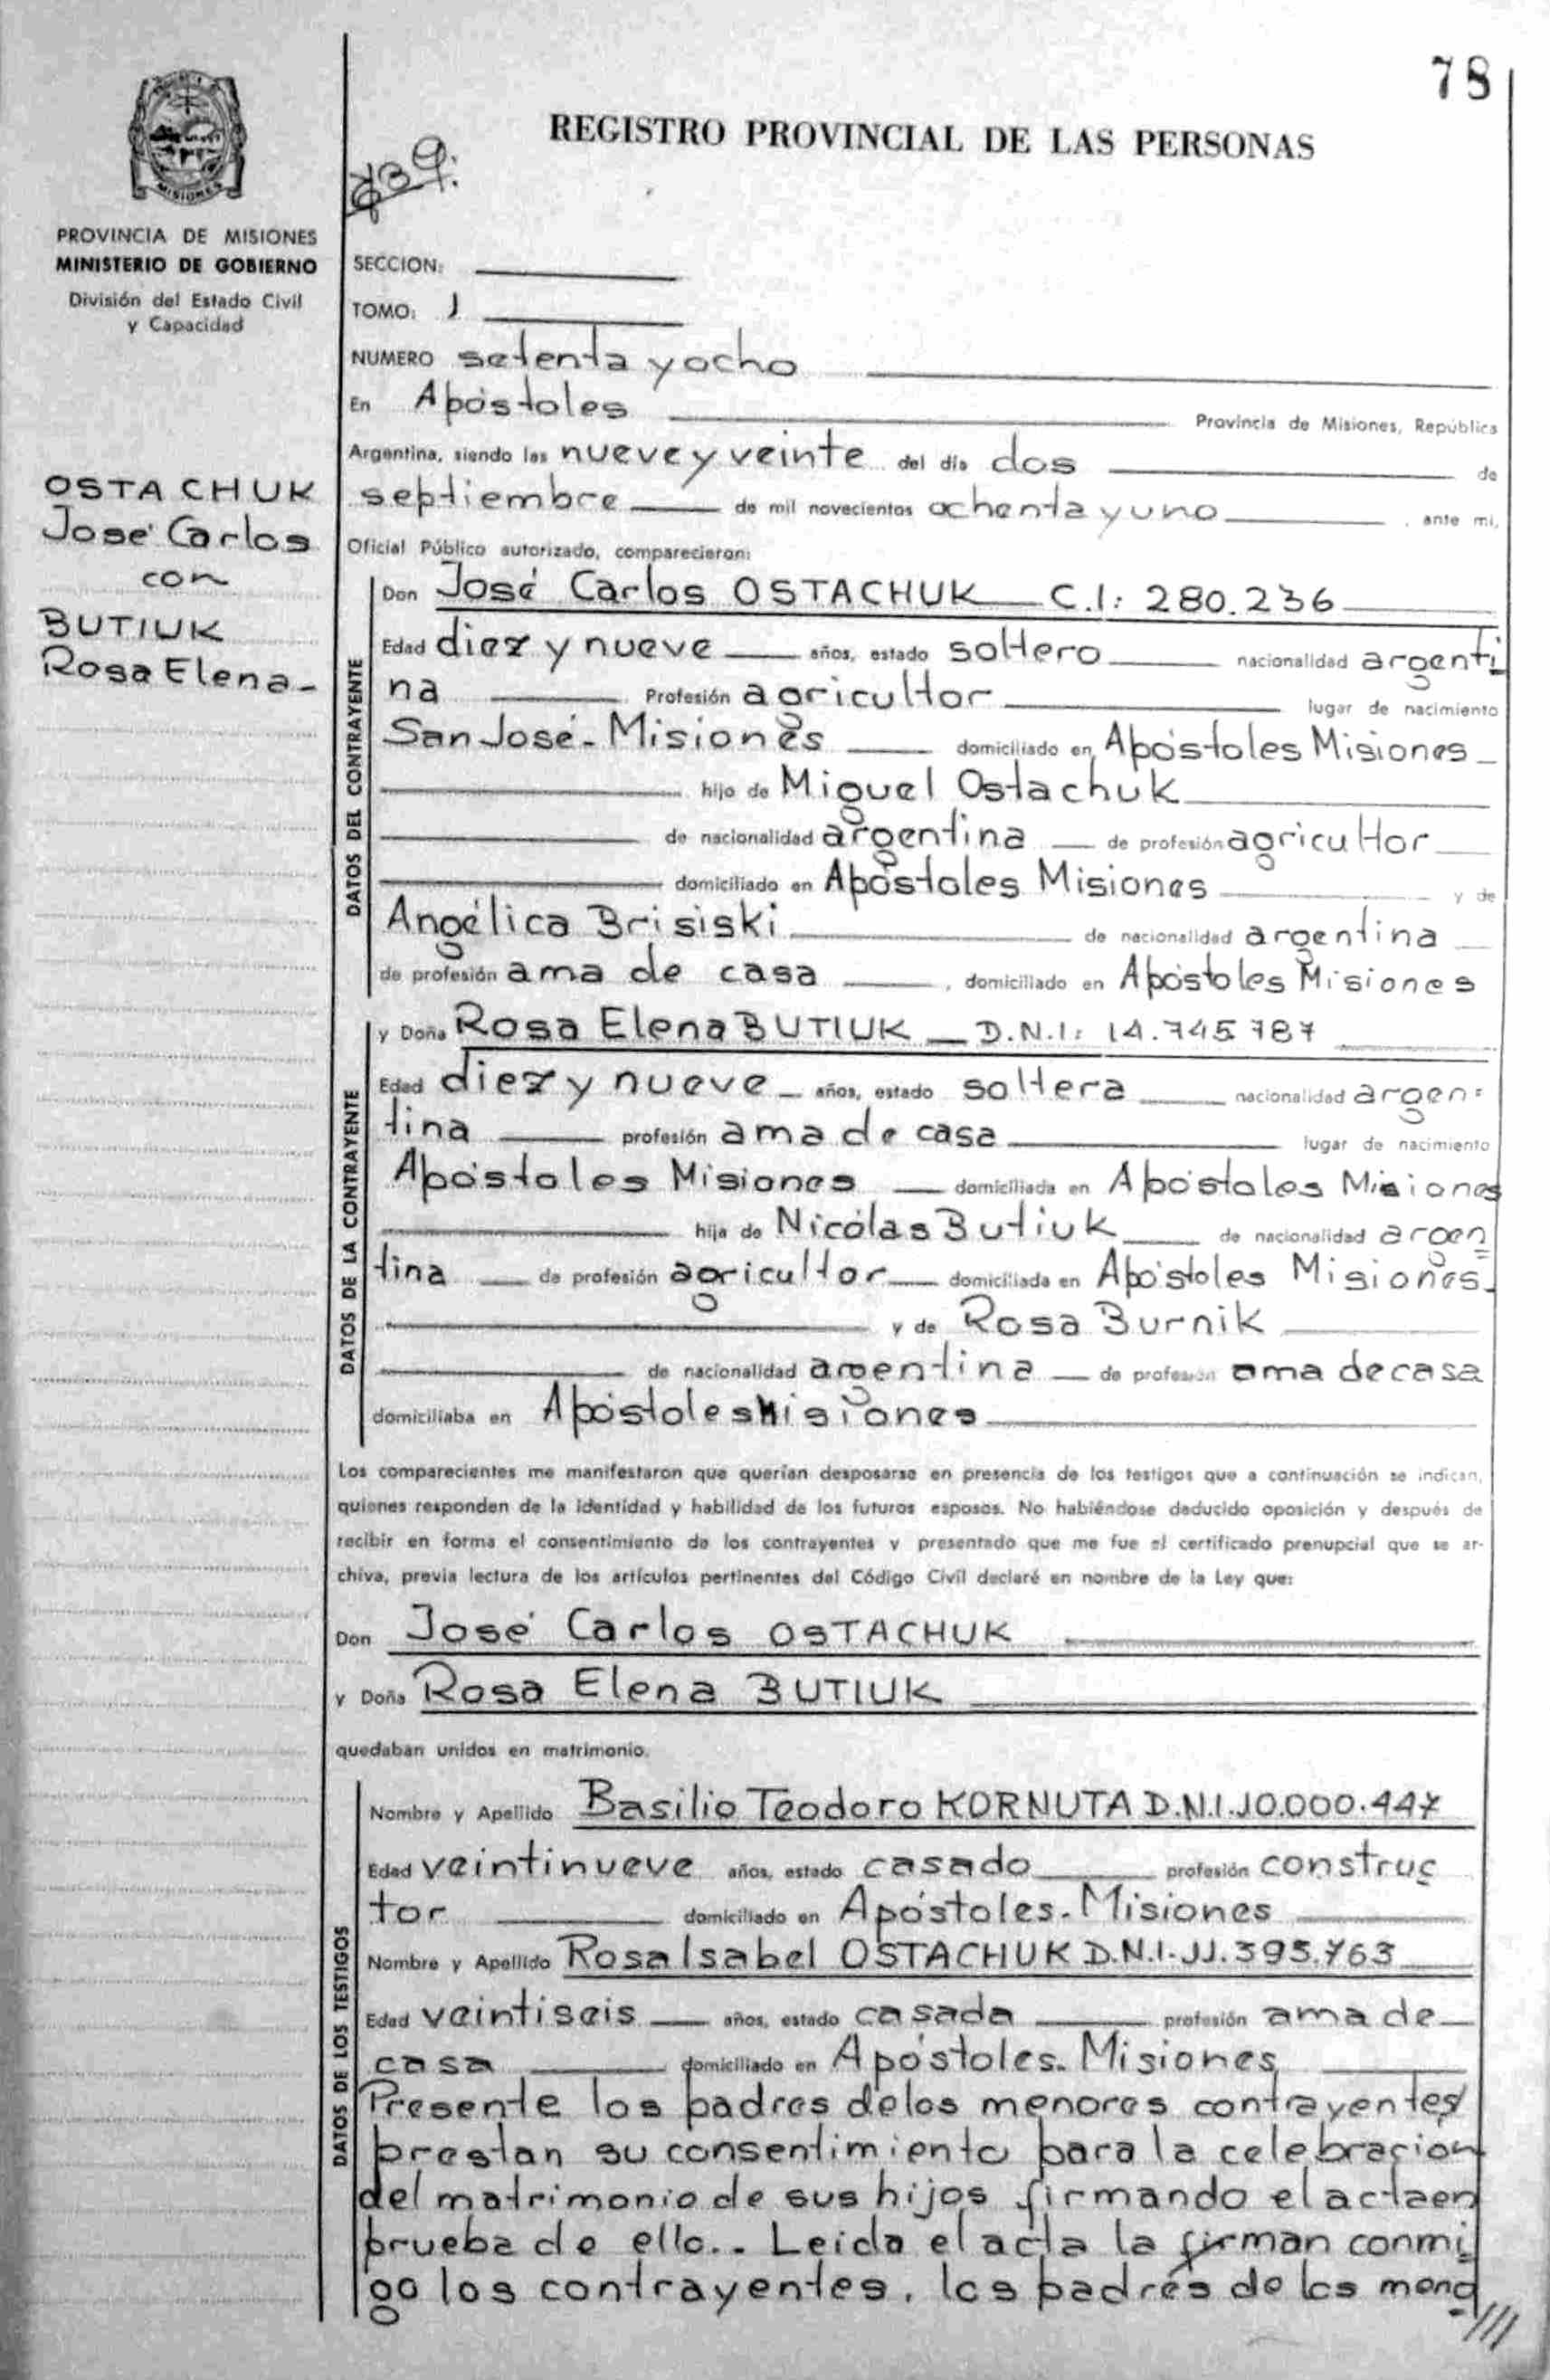 78
REGISTRO PROVINCIAL DE LAS PERSONAS
839.
MISIONES
PROVINCIA DE MISIONES
MINISTERIO DE GOBIERNO
División del Estado Civil
y Capacidad
OSTACHUK
José Carlos
con
BUTIUK
Rosa Elena-
SECCION:
TOMO: 1
NUMERO setenta y ocho
En Apóstoles Provincia de Misiones, República
Argentina, siendo las nueve y veinte del día dos de
septiembre de mil novecientos ochenta y uno, ante mi,
Oficial Público autorizado, comparecieron:
DATOS DEL CONTRAYENTE
Don José Carlos OSTACHUK C.I: 280.236
Edad diez y nueve años, estado soltero nacionalidad argenti
na Profesión agricultor lugar de nacimiento
San José - Misiones domiciliado en Apóstoles Misiones
hijo de Miguel Ostachuk
de nacionalidad argentina de profesión agricultor
domiciliado en Apóstoles Misiones y de
Angélica Brisiski de nacionalidad argentina
de profesión ama de casa, domiciliado en Apóstoles Misiones
DATOS DE LA CONTRAYENTE
y Doña Rosa Elena BUTIUK D.N.I: 14.745 787
Edad diez y nueve años, estado soltera nacionalidad argen=
tina profesión ama de casa lugar de nacimiento
Apóstoles Misiones domiciliada en Apóstoles Misiones
hija de Nicólas Butiuk de nacionalidad argen
tina de profesión agricultor domiciliada en Apóstoles Misiones.
y de Rosa Burnik
de nacionalidad argentina de profesión ama de casa
domiciliaba en Apóstoles Misiones
Los comparecientes me manifestaron que querían desposarse en presencia de los testigos que a continuación se indican,
quienes responden de la identidad y habilidad de los futuros esposos. No habiéndose deducido oposición y después de
recibir en forma el consentimiento de los contrayentes y presentado que me fue el certificado prenupcial que se ar-
chiva, previa lectura de los artículos pertinentes del Código Civil declaré en nombre de la Ley que:
Don José Carlos OSTACHUK
y Doña Rosa Elena BUTIUK
quedaban unidos en matrimonio.
DATOS DE LOS TESTIGOS
Nombre y Apellido Basilio Teodoro KORNUTA D.N.I. 10.000.447
Edad veintinueve años, estado casado profesión construc
tor domiciliado en Apóstoles. Misiones
Nombre y Apellido Rosa Isabel OSTACHUK D.N.I. 11.395.763
Edad veintiseis años, estado casada profesión ama de
casa domiciliado en Apóstoles. Misiones
Presente los padres de los menores contrayentes
prestan su consentimiento para la celebracion
del matrimonio de sus hijos firmando el acta en
prueba de ello.. Leida el acta la firman conmi
go los contrayentes, los padres de los meno
///